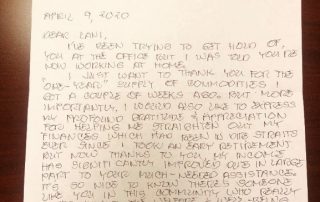 APRIL 9, 2020
DEAR LANI,
I'VE BEEN TRYING TO GET HOLD OF,
YOU AT THE OFFICE BUT I WAS TOLD YOU'RE
NOW WORKING AT HOME.
I JUST WANT TO THANK YOU FOR THE
ONE-YEAR" SUPPLY OF COMMODITIES I
GOT A COUPLE OF WEEKS AGO. BUT MORE
IMPORTANTLY, I WOULD ALSO LIKE TO EXPRESS
MY PROFOUND GRATITUDE & APPRECIATION
FOR HELPING ME STRAIGHTEN OUT MY
FINANCES WHICH HAD BEEN IN DIRE STRAITS
EVER SINCE I TOOK AN EARLY RETIREMENT
BUT NOW THANKS TO YOU MY INCOME
HAS SIGNIFICANTLY IMPROVED DUE IN LARGE
PART TO YOUR MUCH-NEEDED ASSISTANCE.
IT'S SO NICE TO KNOW THERE'S SOMEONE
LIKE YOU IN THIS COMMUNITY WHO REALLY